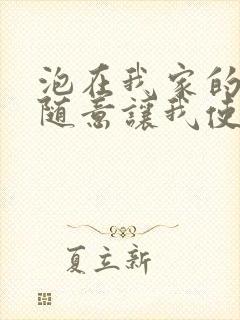 泡在我家的
隨意讓我使
夏立新